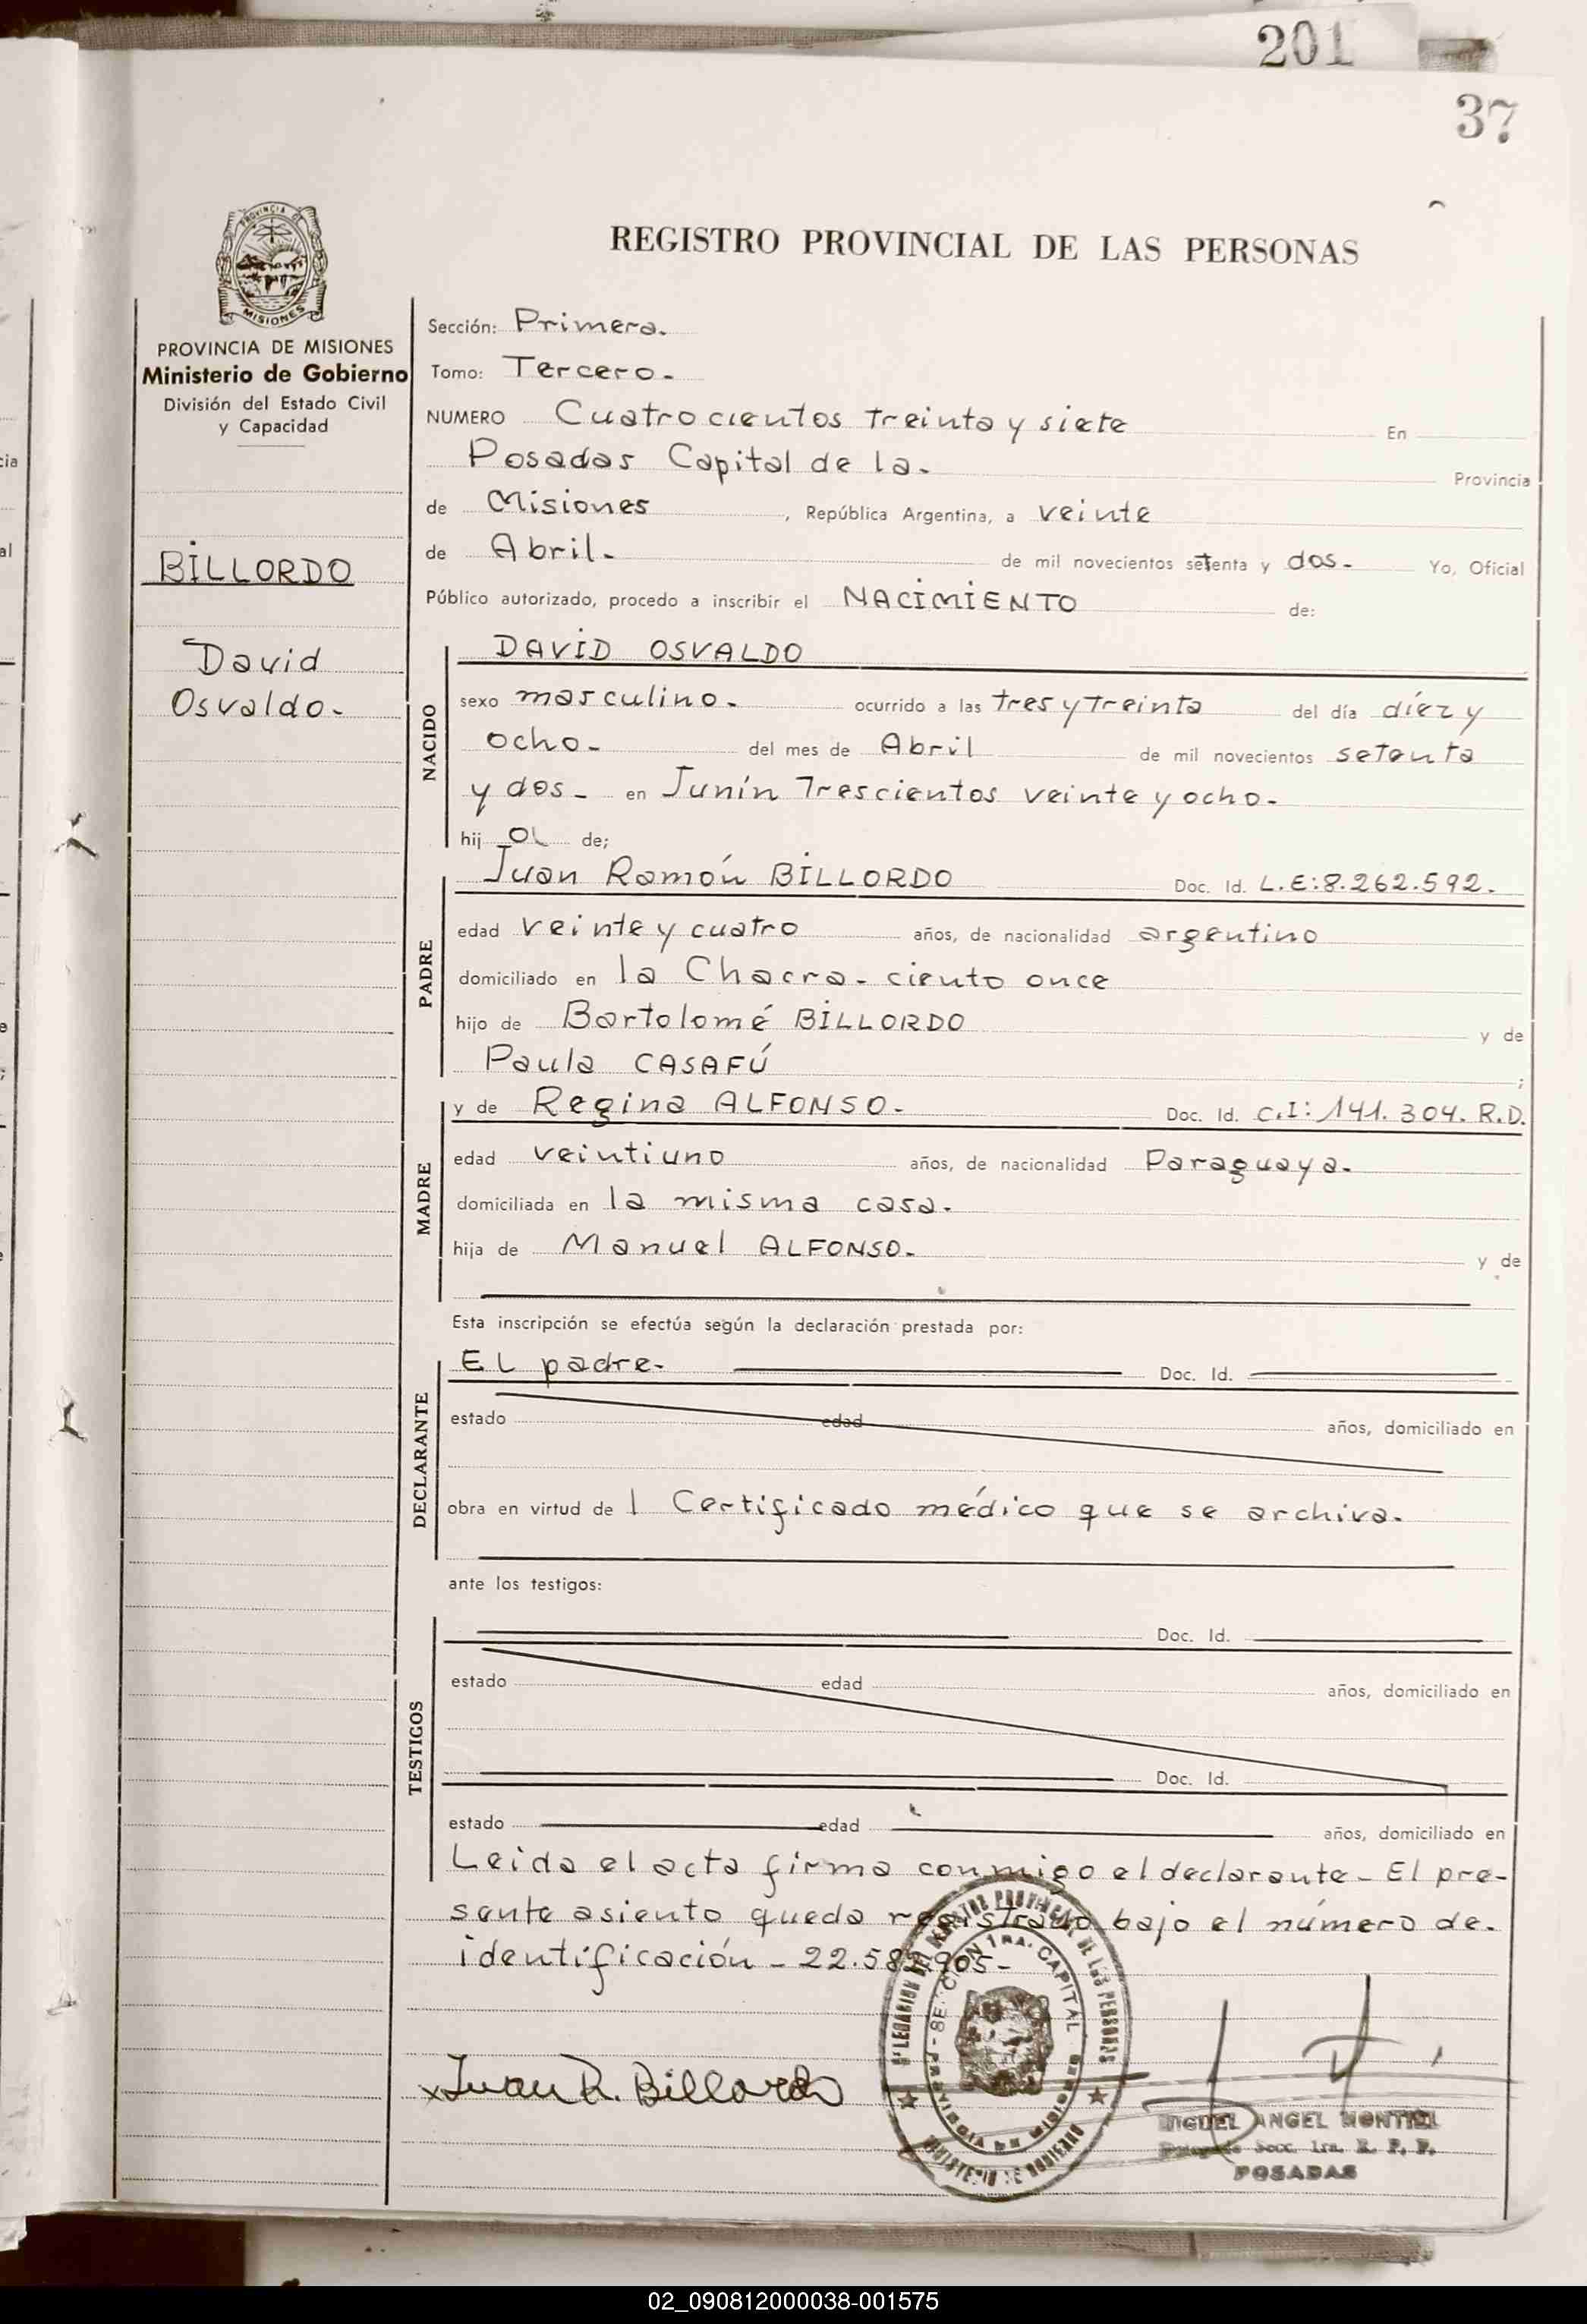 201
37
PROVINCIA DE
MISIONES
REGISTRO PROVINCIAL DE LAS PERSONAS
PROVINCIA DE MISIONES
Ministerio de Gobierno
División del Estado Civil
y Capacidad
BILLORDO
David
Osvaldo.
Sección: Primera.
Tomo: Tercero.
NUMERO Cuatrocientos treinta y siete En
Posadas Capital de la. Provincia
de Misiones, República Argentina, a veinte
de Abril. de mil novecientos setenta y dos. Yo, Oficial
Público autorizado, procedo a inscribir el NACIMIENTO de:
NACIDO
DAVID OSVALDO
sexo masculino. ocurrido a las tres y treinta del día diez y
ocho. del mes de Abril de mil novecientos setenta
y dos. en Junín Trescientos veinte y ocho.
hij o de;
PADRE
Juan Ramón BILLORDO Doc. Id. L.E:8.262.592.
edad veinte y cuatro años, de nacionalidad argentino
domiciliado en la Chacra. ciento once
hijo de Bartolomé BILLORDO y de
Paula CASAFÚ ;
MADRE
y de Regina ALFONSO. Doc. Id. C.I: 141.304. R.D.
edad veintiuno años, de nacionalidad Paraguaya.
domiciliada en la misma casa.
hija de Manuel ALFONSO. y de
Esta inscripción se efectúa según la declaración prestada por:
DECLARANTE
El padre. Doc. Id.
estado edad años, domiciliado en
obra en virtud de 1 Certificado médico que se archiva.
ante los testigos:
TESTIGOS
Doc. Id.
estado edad años, domiciliado en
Doc. Id.
estado edad años, domiciliado en
Leida el acta firma conmigo el declarante. El pre-
sente asiento queda registrado bajo el número de.
identificación - 22.58 .905-
x Juan R. Billordo
CAPITAL
MIGUEL ANGEL MONTIEL
Secc. 1ra. R. P. P.
POSADAS
02_090812000038-001575